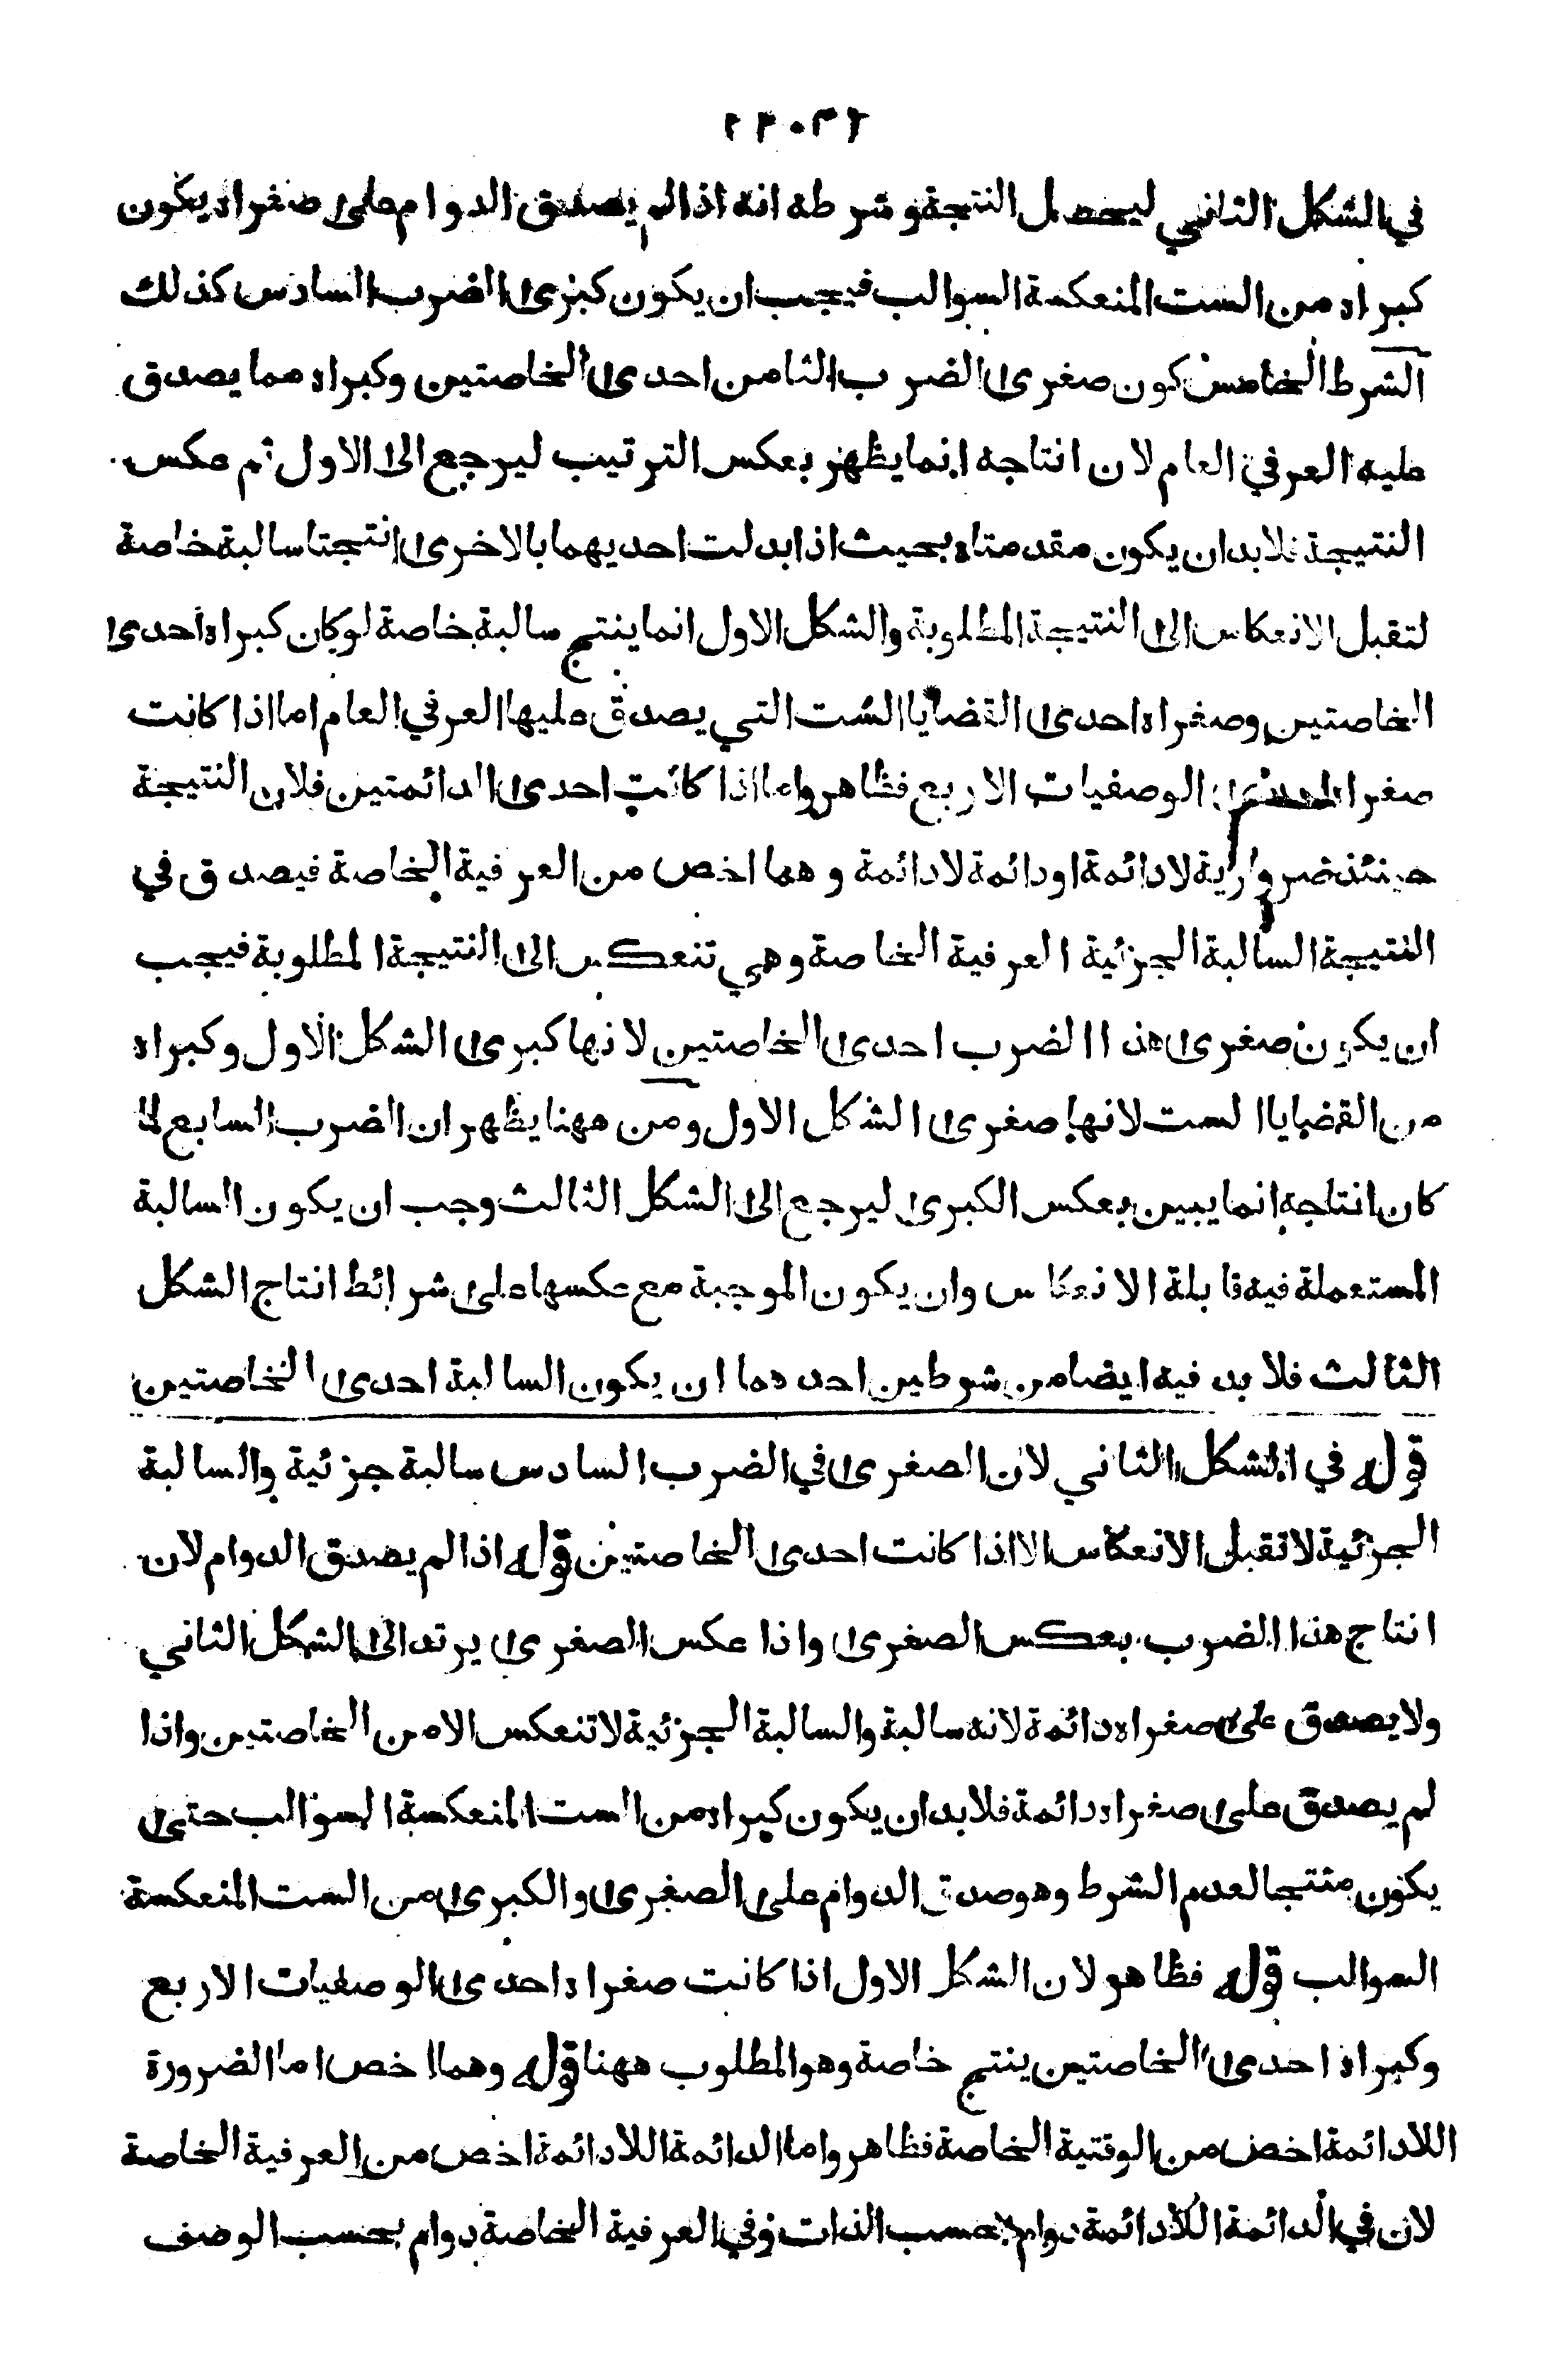 في الشكل الثاني ليحصل النتيجة وشرطه انه اذا لم يصدق الدوام على صغراه يكون
كبراه من الست المنعكسة السوالب فيجب ان يكون كبرى الضرب السادس كذلك
الشرط الخامس كون صغرى الضرب الثامن احدى الخاصتين وكبراه مما يصدق
عليه العرفي العام لان انتاجه انما يظهر بعكس الترتيب ليرجع الى الاول ثم عكس
النتيجة فلا بد ان يكون مقدمتاه بحيث اذا بدلت احديهما بالاخرى انتجتا سالبة خاصة
لتقبل الانعكاس الى النتيجة المطلوبة والشكل الاول انما ينتج سالبة خاصة لو كان كبراه احدى
الخاصتين وصغراه احدى القضايا الست التي يصدق عليها العرفي العام اما اذا كانت
صغراه احدى الوصفيات الاربع فظاهر واما اذا كانت احدى الدائمتين فلان النتيجة
حينئذ ضرورية لادائمة او دائمة لادائمة وهما اخص من العرفية الخاصة فيصدق في
النتيجة السالبة الجزئية العرفية الخاصة وهي تنعكس الى النتيجة المطلوبة فيجب
ان يكون صغرى هذا الضرب احدى الخاصتين لانها كبرى الشكل الاول وكبراه
من القضايا الست لانها صغرى الشكل الاول ومن ههنا يظهر ان الضرب السابع لما
كان انتاجه انما يبين بعكس الكبرى ليرجع الى الشكل الثالث وجب ان يكون السالبة
المستعملة فيه قابلة الانعكاس وان يكون الموجبة مع عكسها على شرائط انتاج الشكل
الثالث فلا بد فيه ايضا من شرطين احدهما ان يكون السالبة احدى الخاصتين
قوله في الشكل الثاني لان الصغرى في الضرب السادس سالبة جزئية والسالبة
الجزئية لا تقبل الانعكاس الا اذا كانت احدى الخاصتين قوله اذا لم يصدق الدوام لان
انتاج هذا الضرب بعكس الصغرى واذا عكس الصغرى يرتد الى الشكل الثاني
ولا يصدق على صغراه دائمة لانه سالبة والسالبة الجزئية لا تنعكس الا من الخاصتين واذا
لم يصدق على صغراه دائمة فلا بد ان يكون كبراه من الست المنعكسة السوالب حتى
يكون منتجا لعدم الشرط وهو صدق الدوام على الصغرى والكبرى من الست المنعكسة
السوالب قوله فظاهر لان الشكل الاول اذا كانت صغراه احدى الوصفيات الاربع
وكبراه احدى الخاصتين ينتج خاصة وهو المطلوب ههنا قوله وهما اخص اما الضرورة
اللادائمة اخص من الوقتية الخاصة فظاهر واما الدائمة اللادائمة اخص من العرفية الخاصة
لان في الدائمة اللادائمة دوام بحسب الذات وفي العرفية الخاصة دوام بحسب الوصف